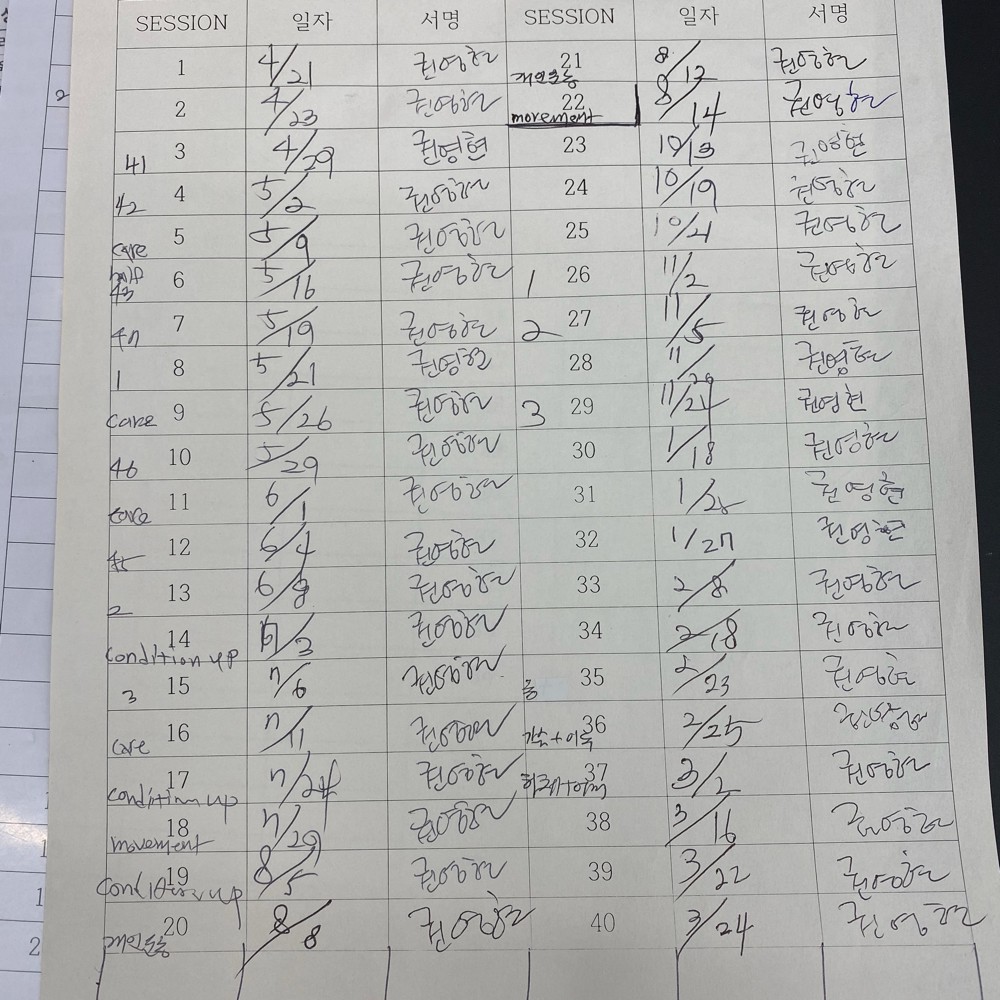 SESSION 일자 서명 SESSION 일자 서명
1 4/21 권영현 21 개인운동 8/12 권영현
2 4/23 권영현 22 movement 8/14 권영현
41 3 4/29 권영현 23 10/13 권영현
42 4 5/2 권영현 24 10/19 권영현
care 5 5/9 권영현 25 10/4 권영현
half 43 6 5/16 권영현 1 26 11/2 권영현
7 5/19 권영현 2 27 11/5 권영현
1 8 5/21 권영현 28 11/ 권영현
care 9 5/26 권영현 3 29 11/24 권영현
46 10 5/29 권영현 30 1/18 권영현
care 11 6/1 권영현 31 권영현
12 6/4 권영현 32 1/27 권영현
2 13 권영현 33 2/8 권영현
14 condition up 7/3 권영현 34 2/18 권영현
3 15 7/6 권영현 35 2/23 권영현
care 16 7/11 권영현 36 2/25 권영현
17 condition up 7/24 권영현 37 3/2 권영현
18 movement 7/29 권영현 38 3/16 권영현
19 condition up 8/5 권영현 39 3/22 권영현
20 개인운동 8/8 권영현 40 3/24 권영현